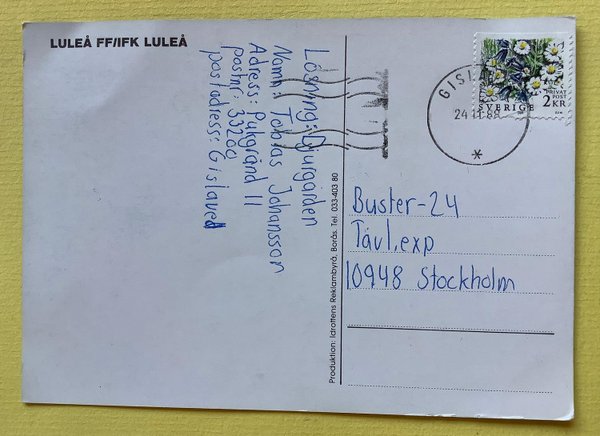 LULEÅ FF/IFK LULEÅ
Lösning: Djurgården
Namn: Tobias Johansson
Adress: Pukgränd 11
postnr: 33200
postadress: Gislaved
Produktion: Idrottens Reklambyrå, Borås. Tel. 033-403 80
24.11.88
PRIVAT
POST
SVERIGE 2KR
Buster-24
Tävl.exp
10948 Stockholm